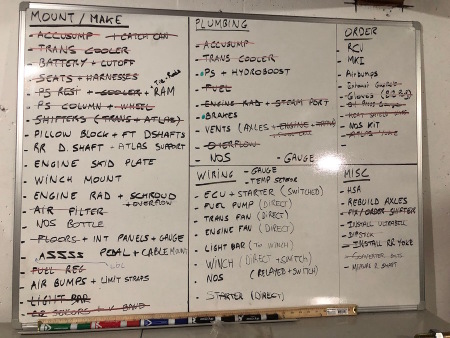 MOUNT / MAKE
- ACCUSUMP - 1 CATCH CAN
- TRANS COOLER
- BATTERY + CUTOFF
- SEATS + HARNESSES
- PS RES + COOLER + RAM
- PS COLUMN + WHEEL
- SHIFTERS (TRANS + ATLAS)
- PILLOW BLOCK + FT DSHAFTS
- RR D.SHAFT - ATLAS SUPPORT
- ENGINE SKID PLATE
- WINCH MOUNT
- ENGINE RAD + SCHROUD
+ OVERFLOW
- AIR FILTER
NOS BOTTLE
- FLOORS + INT PANELS + GAUGE
- ASSSS PEDAL + CABLE MOUNT
- FUEL REG LOL
- AIR BUMPS + LIMIT STRAPS
- LIGHT BAR
PLUMBING
- ACCUSUMP
- TRANS COOLER
- PS + HYDROBOOST
- FUEL
- ENGINE RAD + STEAM PORT
- BRAKES
- VENTS (AXLES + ENGINE + TRANS)
- OVERFLOW
- NOS - GAUGE
WIRING - GAUGE
- TEMP SENSOR
- ECU + STARTER (SWITCHED)
- FUEL PUMP (DIRECT)
- TRANS FAN (DIRECT)
- ENGINE FAN (DIRECT)
- LIGHT BAR (TO WINCH)
- WINCH (DIRECT + SWITCH)
- NOS (RELAYED + SWITCH)
- STARTER (DIRECT)
ORDER
- RCV
- MKI
- Airbumps
- Exhaust
- Gloves
- NOS KIT
MISC
- HSR
- REBUILD AXLES
- FIX/ORDER SHIFTER
- INSTALL ULTRABELL
- DIPSTICK
- INSTALL RR YOKE
- MEASURE R SHAFT